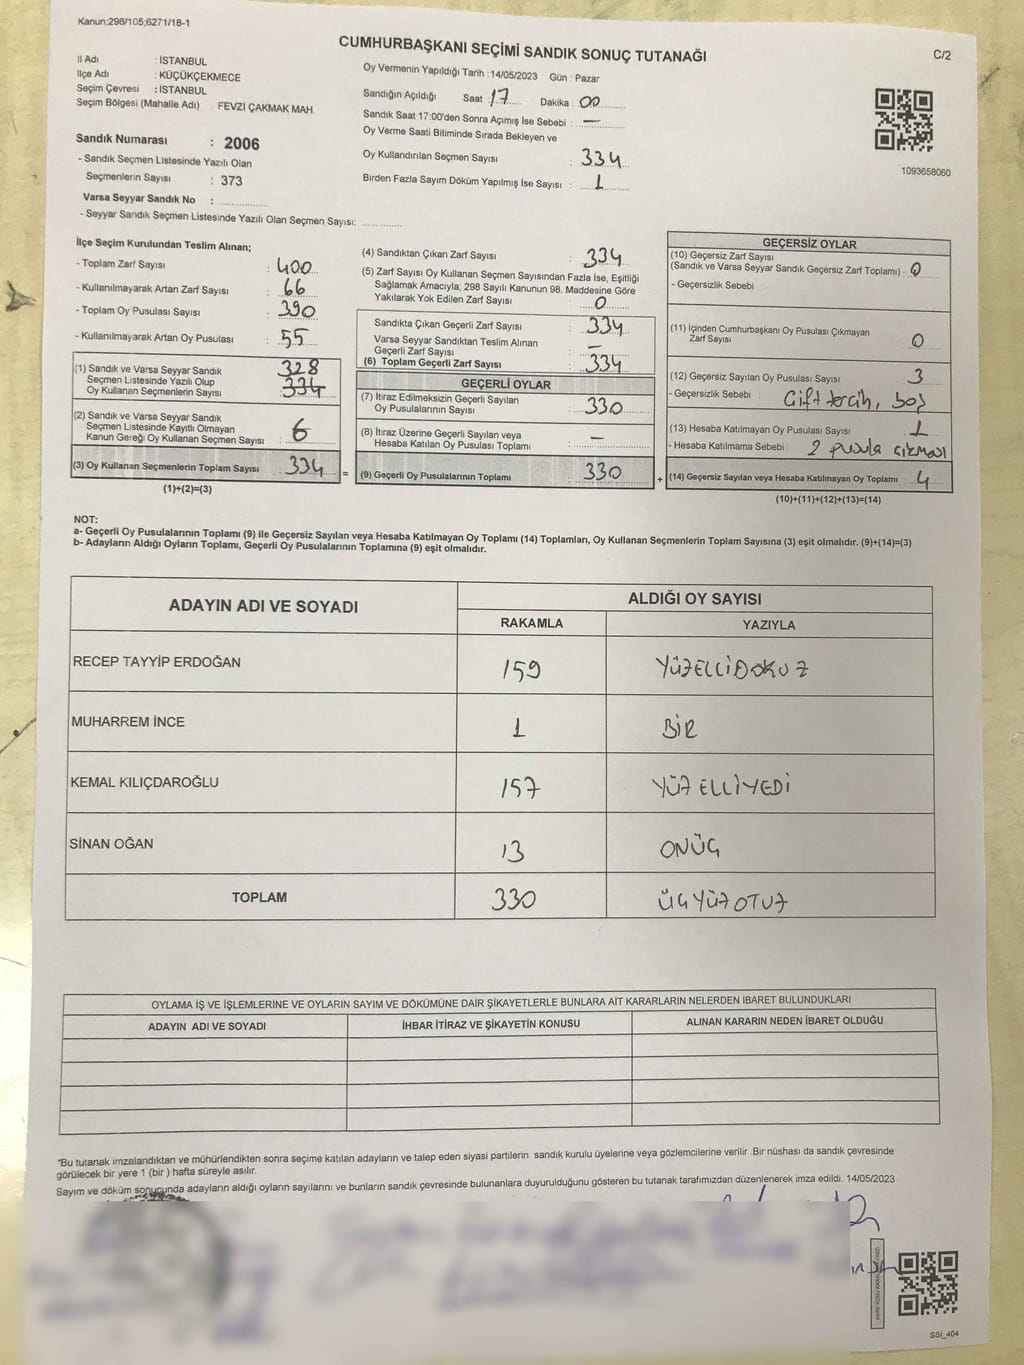 Kanun;298/105;6271/18-1
CUMHURBAŞKANI SEÇİMİ SANDIK SONUÇ TUTANAĞI
C/2
İl Adı : İSTANBUL
İlçe Adı : KÜÇÜKÇEKMECE
Seçim Çevresi : İSTANBUL
Seçim Bölgesi (Mahalle Adı) : FEVZİ ÇAKMAK MAH.
Sandık Numarası : 2006
- Sandık Seçmen Listesinde Yazılı Olan
Seçmenlerin Sayısı : 373
Varsa Seyyar Sandık No : ..............
- Seyyar Sandık Seçmen Listesinde Yazılı Olan Seçmen Sayısı: ............
Oy Vermenin Yapıldığı Tarih : 14/05/2023 Gün : Pazar
Sandığın Açıldığı Saat : 17 Dakika : 00
Sandık Saat 17:00'den Sonra Açımış İse Sebebi : —
Oy Verme Saati Bitiminde Sırada Bekleyen ve
Oy Kullandırılan Seçmen Sayısı : 334
Birden Fazla Sayım Döküm Yapılmış İse Sayısı : 1
1093658060
İlçe Seçim Kurulundan Teslim Alınan;
- Toplam Zarf Sayısı : 400
- Kullanılmayarak Artan Zarf Sayısı : 66
- Toplam Oy Pusulası Sayısı : 390
- Kullanılmayarak Artan Oy Pusulası : 55
(1) Sandık ve Varsa Seyyar Sandık
Seçmen Listesinde Yazılı Olup
Oy Kullanan Seçmenlerin Sayısı : 328 334
(2) Sandık ve Varsa Seyyar Sandık
Seçmen Listesinde Kayıtlı Olmayan
Kanun Gereği Oy Kullanan Seçmen Sayısı : 6
(3) Oy Kullanan Seçmenlerin Toplam Sayısı : 334 =
(1)+(2)=(3)
(4) Sandıktan Çıkan Zarf Sayısı : 334
(5) Zarf Sayısı Oy Kullanan Seçmen Sayısından Fazla İse, Eşitliği
Sağlamak Amacıyla; 298 Sayılı Kanunun 98. Maddesine Göre
Yakılarak Yok Edilen Zarf Sayısı : 0
Sandıkta Çıkan Geçerli Zarf Sayısı : 334
Varsa Seyyar Sandıktan Teslim Alınan
Geçerli Zarf Sayısı : —
(6) Toplam Geçerli Zarf Sayısı : 334
GEÇERLİ OYLAR
(7) İtiraz Edilmeksizin Geçerli Sayılan
Oy Pusulalarının Sayısı : 330
(8) İtiraz Üzerine Geçerli Sayılan veya
Hesaba Katılan Oy Pusulası Toplamı : —
(9) Geçerli Oy Pusulalarının Toplamı : 330 +
GEÇERSİZ OYLAR
(10) Geçersiz Zarf Sayısı
(Sandık ve Varsa Seyyar Sandık Geçersiz Zarf Toplamı) : 0
- Geçersizlik Sebebi :
(11) İçinden Cumhurbaşkanı Oy Pusulası Çıkmayan
Zarf Sayısı : 0
(12) Geçersiz Sayılan Oy Pusulası Sayısı : 3
- Geçersizlik Sebebi : Çift tercih, boş
(13) Hesaba Katılmayan Oy Pusulası Sayısı : 1
- Hesaba Katılmama Sebebi : 2 pusula çıkması
(14) Geçersiz Sayılan veya Hesaba Katılmayan Oy Toplamı : 4
(10)+(11)+(12)+(13)=(14)
NOT:
a- Geçerli Oy Pusulalarının Toplamı (9) ile Geçersiz Sayılan veya Hesaba Katılmayan Oy Toplamı (14) Toplamları, Oy Kullanan Seçmenlerin Toplam Sayısına (3) eşit olmalıdır. (9)+(14)=(3)
b- Adayların Aldığı Oyların Toplamı, Geçerli Oy Pusulalarının Toplamına (9) eşit olmalıdır.
ADAYIN ADI VE SOYADI
ALDIĞI OY SAYISI
RAKAMLA YAZIYLA
RECEP TAYYİP ERDOĞAN 159 YÜZELLİDOKUZ
MUHARREM İNCE 1 BİR
KEMAL KILIÇDAROĞLU 157 YÜZELLİYEDİ
SİNAN OĞAN 13 ONÜÇ
TOPLAM 330 ÜÇYÜZOTUZ
OYLAMA İŞ VE İŞLEMLERİNE VE OYLARIN SAYIM VE DÖKÜMÜNE DAİR ŞİKAYETLERLE BUNLARA AİT KARARLARIN NELERDEN İBARET BULUNDUKLARI
ADAYIN ADI VE SOYADI İHBAR İTİRAZ VE ŞİKAYETİN KONUSU ALINAN KARARIN NEDEN İBARET OLDUĞU
*Bu tutanak imzalandıktan ve mühürlendikten sonra seçime katılan adayların ve talep eden siyasi partilerin sandık kurulu üyelerine veya gözlemcilerine verilir .Bir nüshası da sandık çevresinde
görülecek bir yere 1 (bir ) hafta süreyle asılır.
Sayım ve döküm sonucunda adayların aldığı oyların sayılarını ve bunların sandık çevresinde bulunanlara duyurulduğunu gösteren bu tutanak tarafımızdan düzenlenerek imza edildi. 14/05/2023
SSİ_404